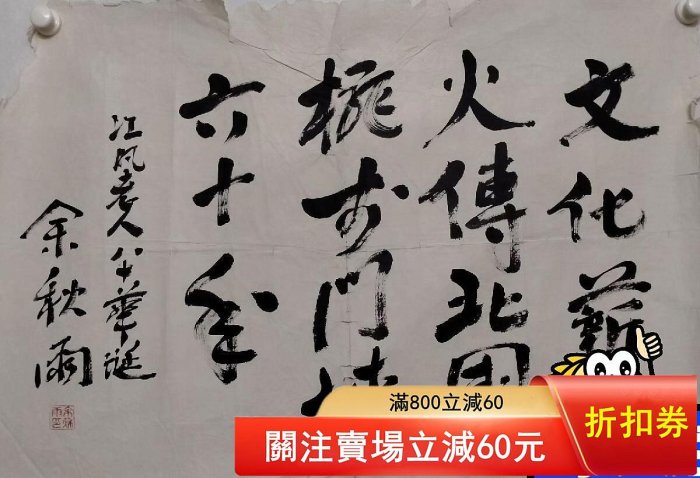 文化薪
火傳北国
桃李門
六十年
江风老人八十華誕
余秋雨
滿800立減60
關注賣場立減60元
折扣券